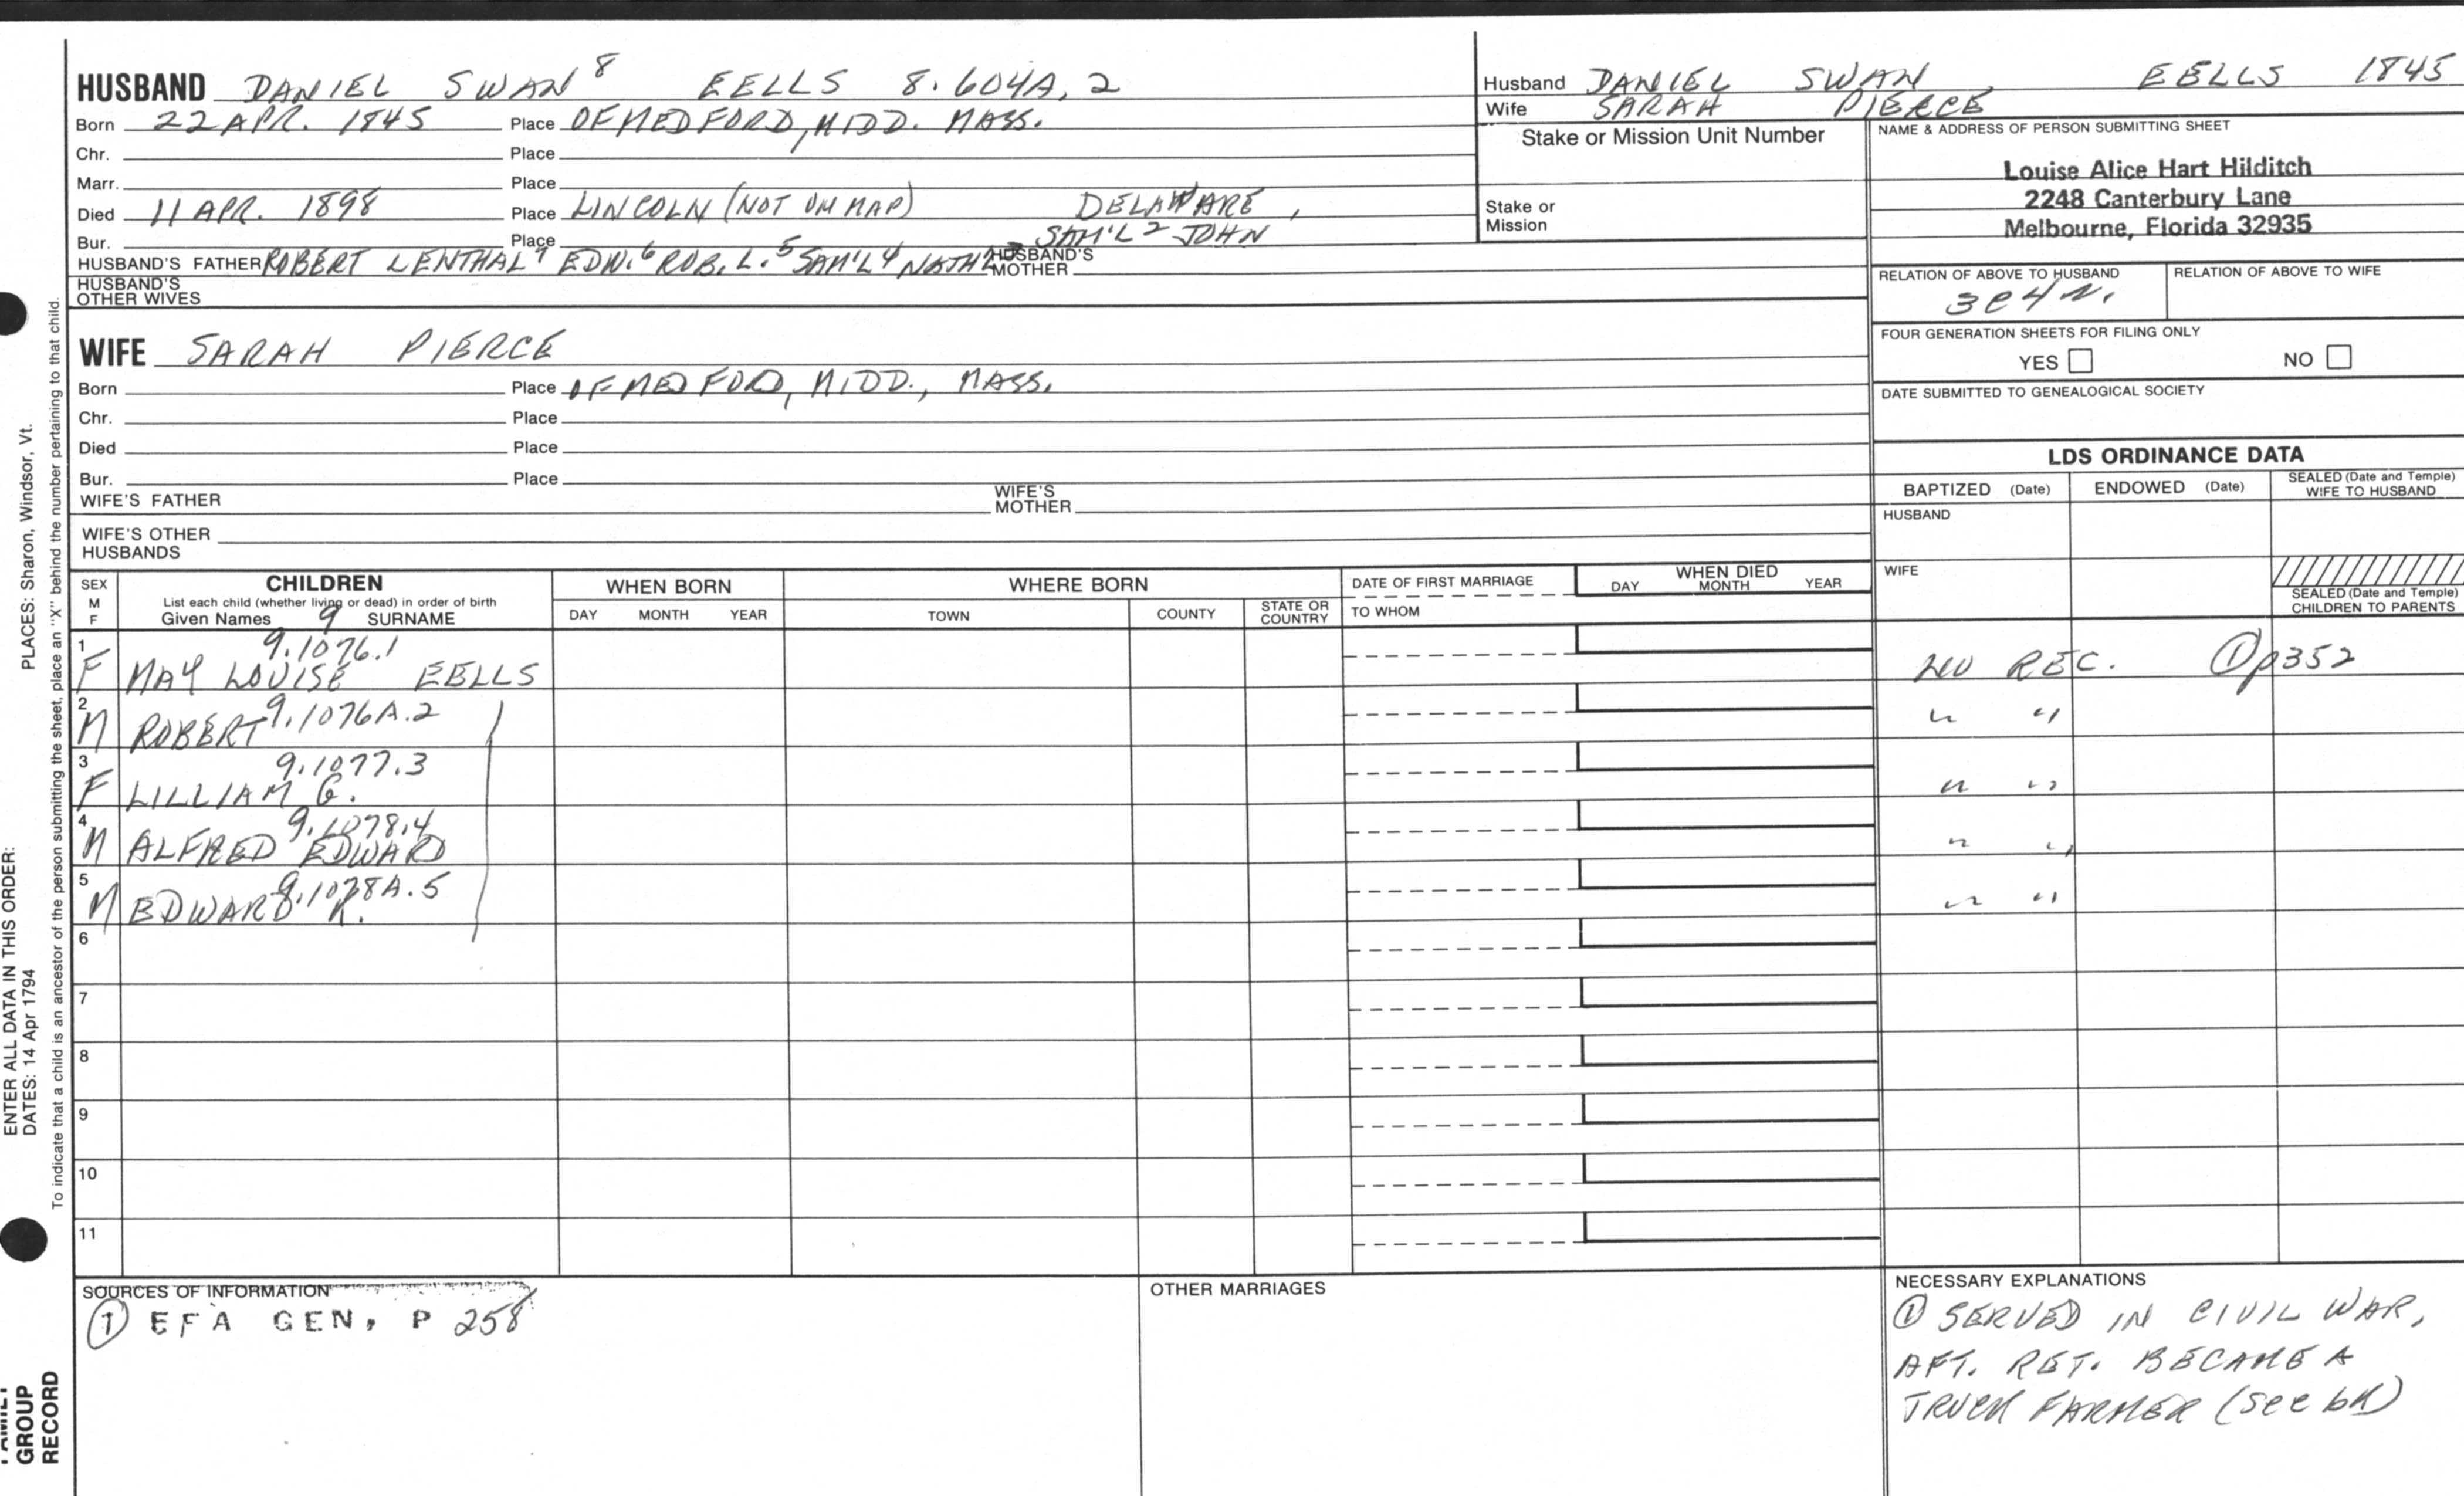 HUSBAND DANIEL SWAN 8 EELLS 8.604A, 2
Born 22 APR. 1845 Place OF MEDFORD, MIDD. MASS.
Chr. Place
Marr. Place
Died 11 APR. 1898 Place LINCOLN (NOT ON MAP) DELAWARE,
Bur. Place SAM'L 2 JOHN
HUSBAND'S FATHER ROBERT LENTHAL 7 EDW. 6 ROB. L. 5 SAM'L 4 NATH HUSBAND'S MOTHER
HUSBAND'S OTHER WIVES
Husband DANIEL SWAN EELLS 1845
Wife SARAH PIERCE
Stake or Mission Unit Number
Stake or Mission
NAME & ADDRESS OF PERSON SUBMITTING SHEET
Louise Alice Hart Hilditch
2248 Canterbury Lane
Melbourne, Florida 32935
RELATION OF ABOVE TO HUSBAND RELATION OF ABOVE TO WIFE
3C4R.
FOUR GENERATION SHEETS FOR FILING ONLY
YES NO
DATE SUBMITTED TO GENEALOGICAL SOCIETY
WIFE SARAH PIERCE
Born Place OF MEDFORD, MIDD., MASS.
Chr. Place
Died Place
Bur. Place
WIFE'S FATHER WIFE'S MOTHER
WIFE'S OTHER HUSBANDS
LDS ORDINANCE DATA
BAPTIZED (Date) ENDOWED (Date) SEALED (Date and Temple) WIFE TO HUSBAND
HUSBAND
WIFE
SEALED (Date and Temple) CHILDREN TO PARENTS
SEX M F
CHILDREN
List each child (whether living or dead) in order of birth
Given Names 9 SURNAME
WHEN BORN
DAY MONTH YEAR
WHERE BORN
TOWN COUNTY STATE OR COUNTRY
DATE OF FIRST MARRIAGE
TO WHOM
WHEN DIED
DAY MONTH YEAR
1 9.1076.1
F MAY LOUISE EELLS NO REC. ① p352
2 M ROBERT 9.1076A.2 " "
3 9.1077.3
F LILLIAM G. " "
4 9.1078.4
M ALFRED EDWARD " "
5 9.1078A.5
M EDWARD R. " "
6
7
8
9
10
11
SOURCES OF INFORMATION
① EFA GEN, P 258
OTHER MARRIAGES
NECESSARY EXPLANATIONS
① SERVED IN CIVIL WAR,
AFT. RET. BECAME A
TRUCK FARMER (See bk)
PLACES: Sharon, Windsor, Vt.
ENTER ALL DATA IN THIS ORDER:
DATES: 14 Apr 1794
To indicate that a child is an ancestor of the person submitting the sheet, place an "X" behind the number pertaining to that child.
FAMILY
GROUP
RECORD